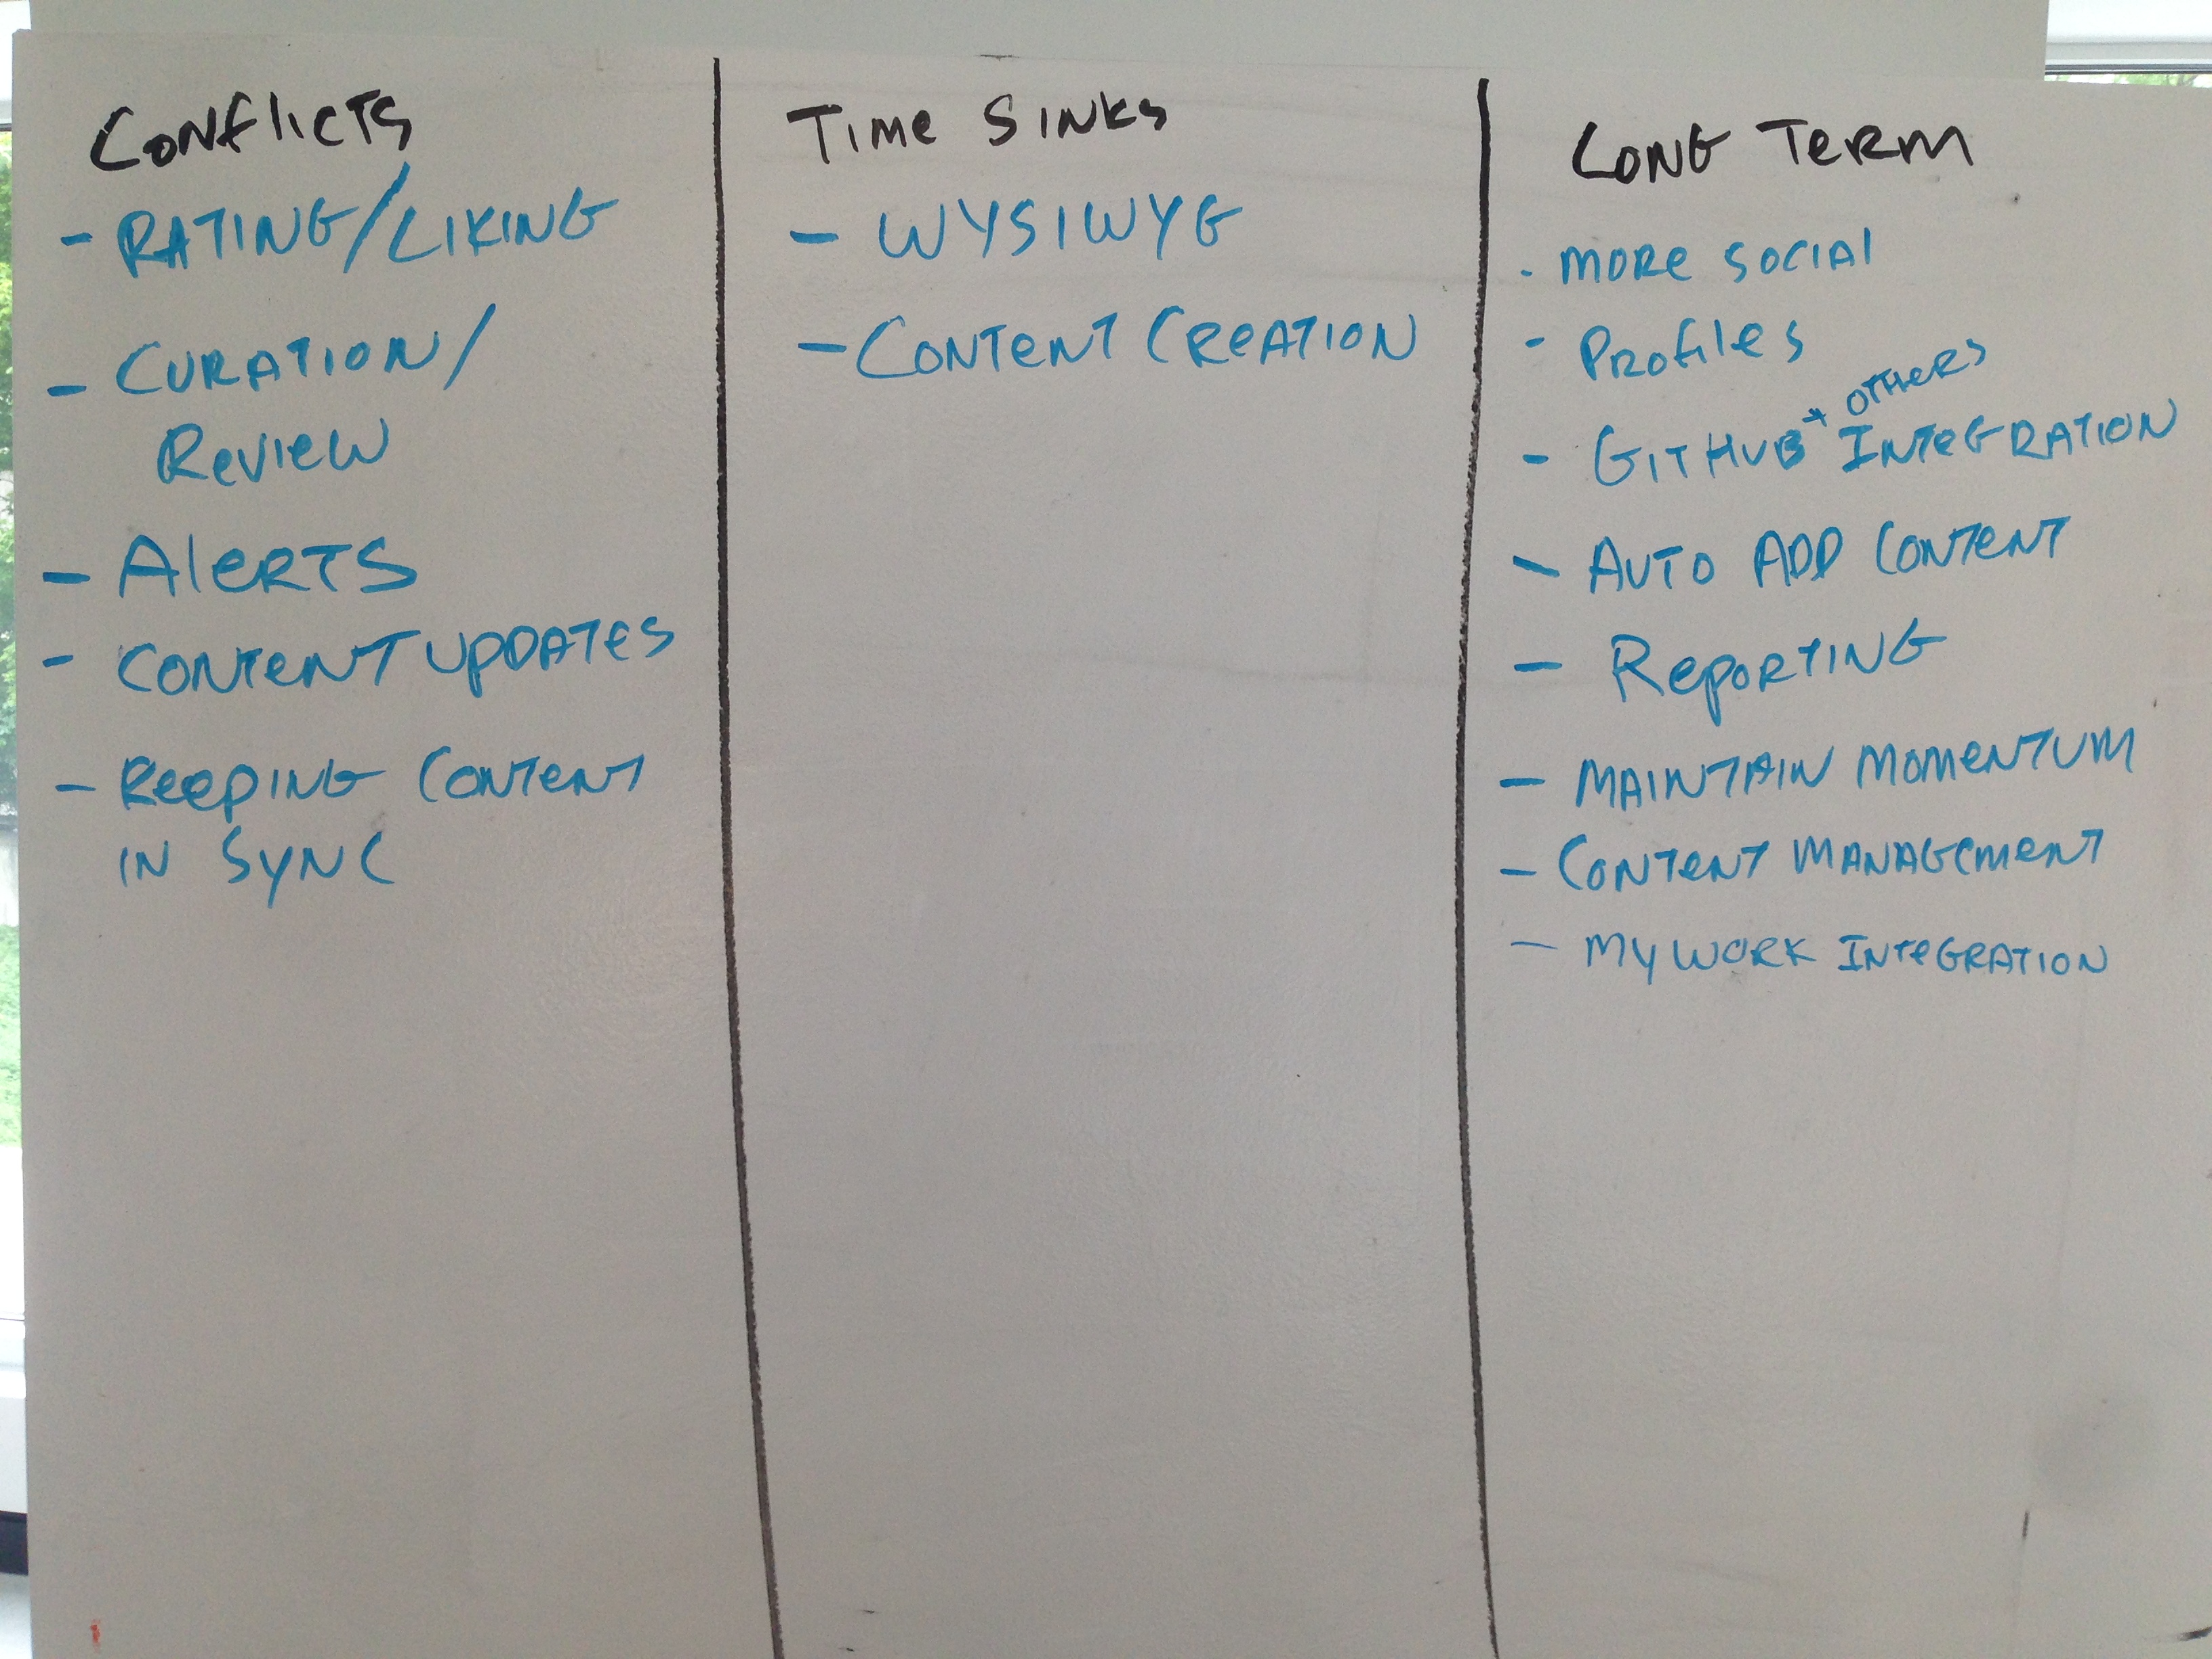 Conflicts
- RATING/LIKING
- CURATION/
Review
- Alerts
- Content updates
- Keeping Content
in Sync
Time Sinks
- WYSIWYG
- Content Creation
Long Term
- more social
- Profiles
+ others
- GitHub Integration
- Auto Add Content
- Reporting
- Maintain momentum
- Content management
- my work Integration